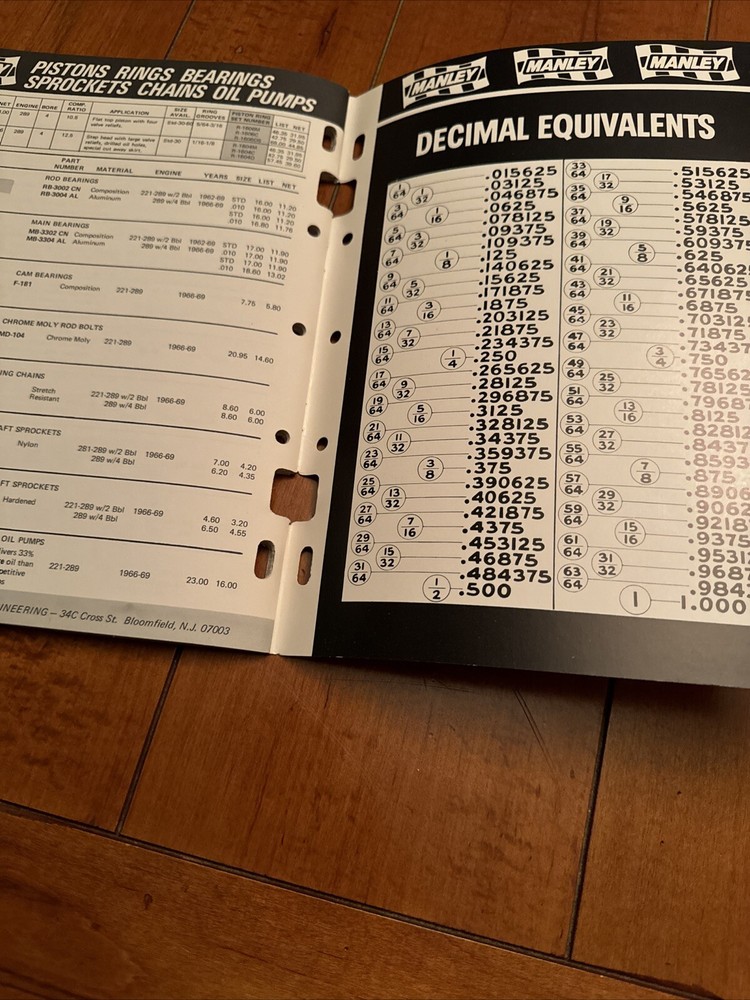 PISTONS RINGS BEARINGS
SPROCKETS CHAINS OIL PUMPS
NET ENGINE BORE COMP. RATIO APPLICATION SIZE AVAIL. RING GROOVES PISTON RING SET NUMBER LIST NET
289 4 10.5 Flat top piston with four valve reliefs. 5/64-3/16
289 4 12.5 1/16-1/8
PART NUMBER MATERIAL ENGINE YEARS SIZE LIST NET
ROD BEARINGS
RB-3002 CN Composition 221-289 w/2 Bbl 1962-69 STD 16.00 11.20
RB-3004 AL Aluminum 289 w/4 Bbl 1966-69 .010 16.00 11.20
STD 16.80
.010 16.80 11.76
MAIN BEARINGS
MB-3302 CN Composition 221-289 w/2 Bbl 1962-69 STD 17.00 11.90
MB-3304 AL Aluminum 289 w/4 Bbl 1966-69 .010 17.00 11.90
STD 17.00 11.90
.010 18.60 13.02
CAM BEARINGS
F-181 Composition 221-289 1966-69 7.75 5.80
CHROME MOLY ROD BOLTS
MD-104 Chrome Moly 221-289 1966-69 20.95 14.60
CHAINS
Stretch 221-289 w/2 Bbl 1966-69 8.60 6.00
Resistant 289 w/4 Bbl 8.60 6.00
SPROCKETS
Nylon 281-289 w/2 Bbl 1966-69 7.00 4.20
289 w/4 Bbl 6.20 4.35
SPROCKETS
Hardened 221-289 w/2 Bbl 1966-69 4.60 3.20
289 w/4 Bbl 6.50 4.55
OIL PUMPS
33%
oil than 221-289 1966-69 23.00 16.00
34C Cross St. Bloomfield, N.J. 07003
MANLEY MANLEY MANLEY
DECIMAL EQUIVALENTS
1/64 .015625
1/32 .03125
3/64 .046875
1/16 .0625
5/64 .078125
3/32 .09375
7/64 .109375
1/8 .125
9/64 .140625
5/32 .15625
11/64 .171875
3/16 .1875
13/64 .203125
7/32 .21875
15/64 .234375
1/4 .250
17/64 .265625
9/32 .28125
19/64 .296875
5/16 .3125
21/64 .328125
11/32 .34375
23/64 .359375
3/8 .375
25/64 .390625
13/32 .40625
27/64 .421875
7/16 .4375
29/64 .453125
15/32 .46875
31/64 .484375
1/2 .500
33/64 .515625
17/32 .53125
35/64 .546875
9/16 .5625
37/64 .578125
19/32 .59375
39/64 .609375
5/8 .625
41/64 .640625
21/32 .65625
43/64 .671875
11/16 .6875
45/64 .703125
23/32 .71875
47/64 .734375
3/4 .750
49/64 .76562
25/32 .78125
51/64 .7968
13/16 .8125
53/64 .8281
27/32 .8437
55/64 .8593
7/8 .875
57/64 .8906
29/32 .9062
59/64 .9218
15/16 .9375
61/64 .9531
31/32 .9687
63/64 .984
1 1.000